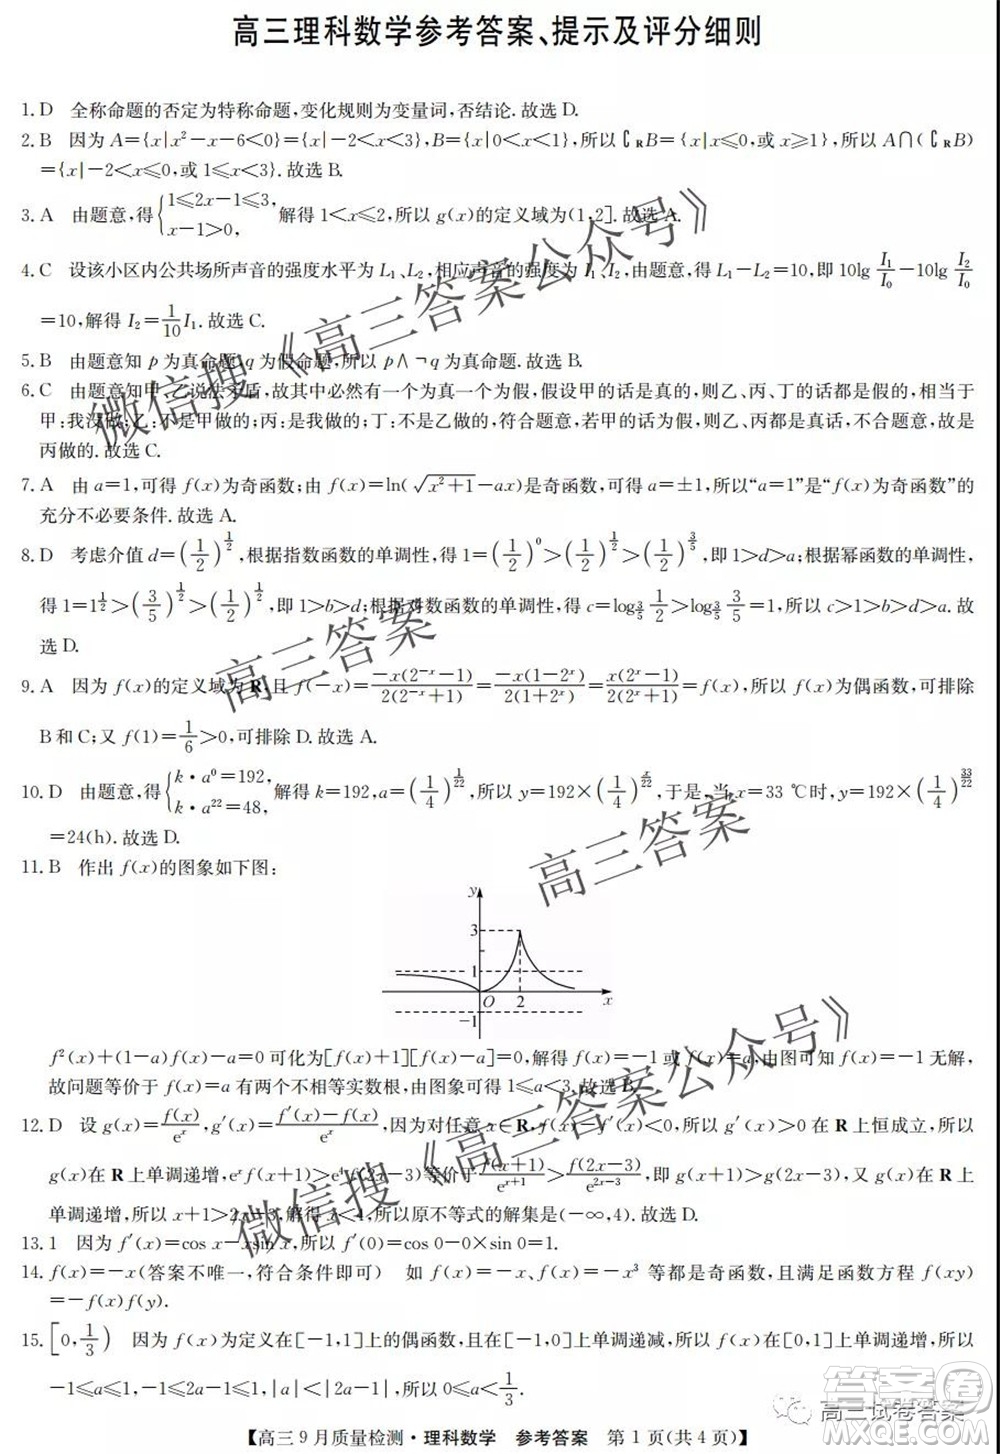 高三理科数学参考答案、提示及评分细则
1. D 全称命题的否定为特称命题,变化规则为变量词,否结论. 故选 D.
2. B 因为 A={x|x²-x-6<0}={x|-2<x<3},B={x|0<x<1},所以∁RB={x|x≤0,或 x≥1},所以 A∩(∁RB)
={x|-2<x≤0,或 1≤x<3}. 故选 B.
3. A 由题意,得{1≤2x-1≤3, x-1>0, 解得 1<x≤2,所以 g(x)的定义域为(1,2]. 故选 A.
4. C 设该小区内公共场所声音的强度水平为 L₁、L₂,相应声音的强度为 I₁、I₂,由题意,得 L₁-L₂=10,即 10lg I₁/I₀-10lg I₂/I₀
=10,解得 I₂=1/10 I₁. 故选 C.
5. B 由题意知 p 为真命题,q 为假命题,所以 p∧¬q 为真命题. 故选 B.
6. C 由题意知甲、乙说法矛盾,故其中必然有一个为真一个为假,假设甲的话是真的,则乙、丙、丁的话都是假的,相当于
甲:我没做;乙:不是甲做的;丙:是我做的;丁:不是乙做的,符合题意,若甲的话为假,则乙、丙都为真话,不符合题意,故是
丙做的. 故选 C.
7. A 由 a=1,可得 f(x)为奇函数;由 f(x)=ln(√(x²+1)-ax)是奇函数,可得 a=±1,所以“a=1”是“f(x)为奇函数”的
充分不必要条件. 故选 A.
8. D 考虑介值 d=(1/2)^(1/2),根据指数函数的单调性,得 1=(1/2)^0>(1/2)^(1/2)>(1/2)^(3/5),即 1>d>a;根据幂函数的单调性,
得 1=1^(1/2)>(3/5)^(1/2)>(1/2)^(1/2),即 1>b>d;根据对数函数的单调性,得 c=log_(3/5) 1/2>log_(3/5) 3/5=1,所以 c>1>b>d>a. 故
选 D.
9. A 因为 f(x)的定义域为 R,且 f(-x)=-x(2^(-x)-1)/2(2^(-x)+1)=-x(1-2^x)/2(1+2^x)=x(2^x-1)/2(2^x+1)=f(x),所以 f(x)为偶函数,可排除
B 和 C;又 f(1)=1/6>0,可排除 D. 故选 A.
10. D 由题意,得{k·a⁰=192, k·a²²=48, 解得 k=192,a=(1/4)^(1/22),所以 y=192×(1/4)^(x/22),于是,当 x=33 ℃时,y=192×(1/4)^(33/22)
=24(h). 故选 D.
11. B 作出 f(x)的图象如下图:
y
3
1
O 2 x
-1
f²(x)+(1-a)f(x)-a=0 可化为[f(x)+1][f(x)-a]=0,解得 f(x)=-1 或 f(x)=a,由图可知 f(x)=-1 无解,
故问题等价于 f(x)=a 有两个不相等实数根,由图象可得 1≤a<3. 故选 B.
12. D 设 g(x)=f(x)/e^x,g′(x)=(f′(x)-f(x))/e^x,因为对任意 x∈R,f(x)-f′(x)<0,所以 g′(x)>0 在 R 上恒成立,所以
g(x)在 R 上单调递增,e^x f(x+1)>e⁴f(2x-3)等价于 f(x+1)/e^(x+1)>f(2x-3)/e^(2x-3),即 g(x+1)>g(2x-3),因为 g(x)在 R 上
单调递增,所以 x+1>2x-3,解得 x<4,所以原不等式的解集是(-∞,4). 故选 D.
13. 1 因为 f′(x)=cos x-xsin x,所以 f′(0)=cos 0-0×sin 0=1.
14. f(x)=-x(答案不唯一,符合条件即可) 如 f(x)=-x、f(x)=-x³ 等都是奇函数,且满足函数方程 f(xy)
=-f(x)f(y).
15. [0,1/3) 因为 f(x)为定义在[-1,1]上的偶函数,且在[-1,0]上单调递减,所以 f(x)在[0,1]上单调递增,所以
-1≤a≤1,-1≤2a-1≤1,|a|<|2a-1|,所以 0≤a<1/3.
【高三 9 月质量检测·理科数学 参考答案 第 1 页(共 4 页)】
微信搜《高三答案公众号》
高三答案
高三答案
微信搜《高三答案公众号》
高三试卷答案
答案圈
MXQE.COM